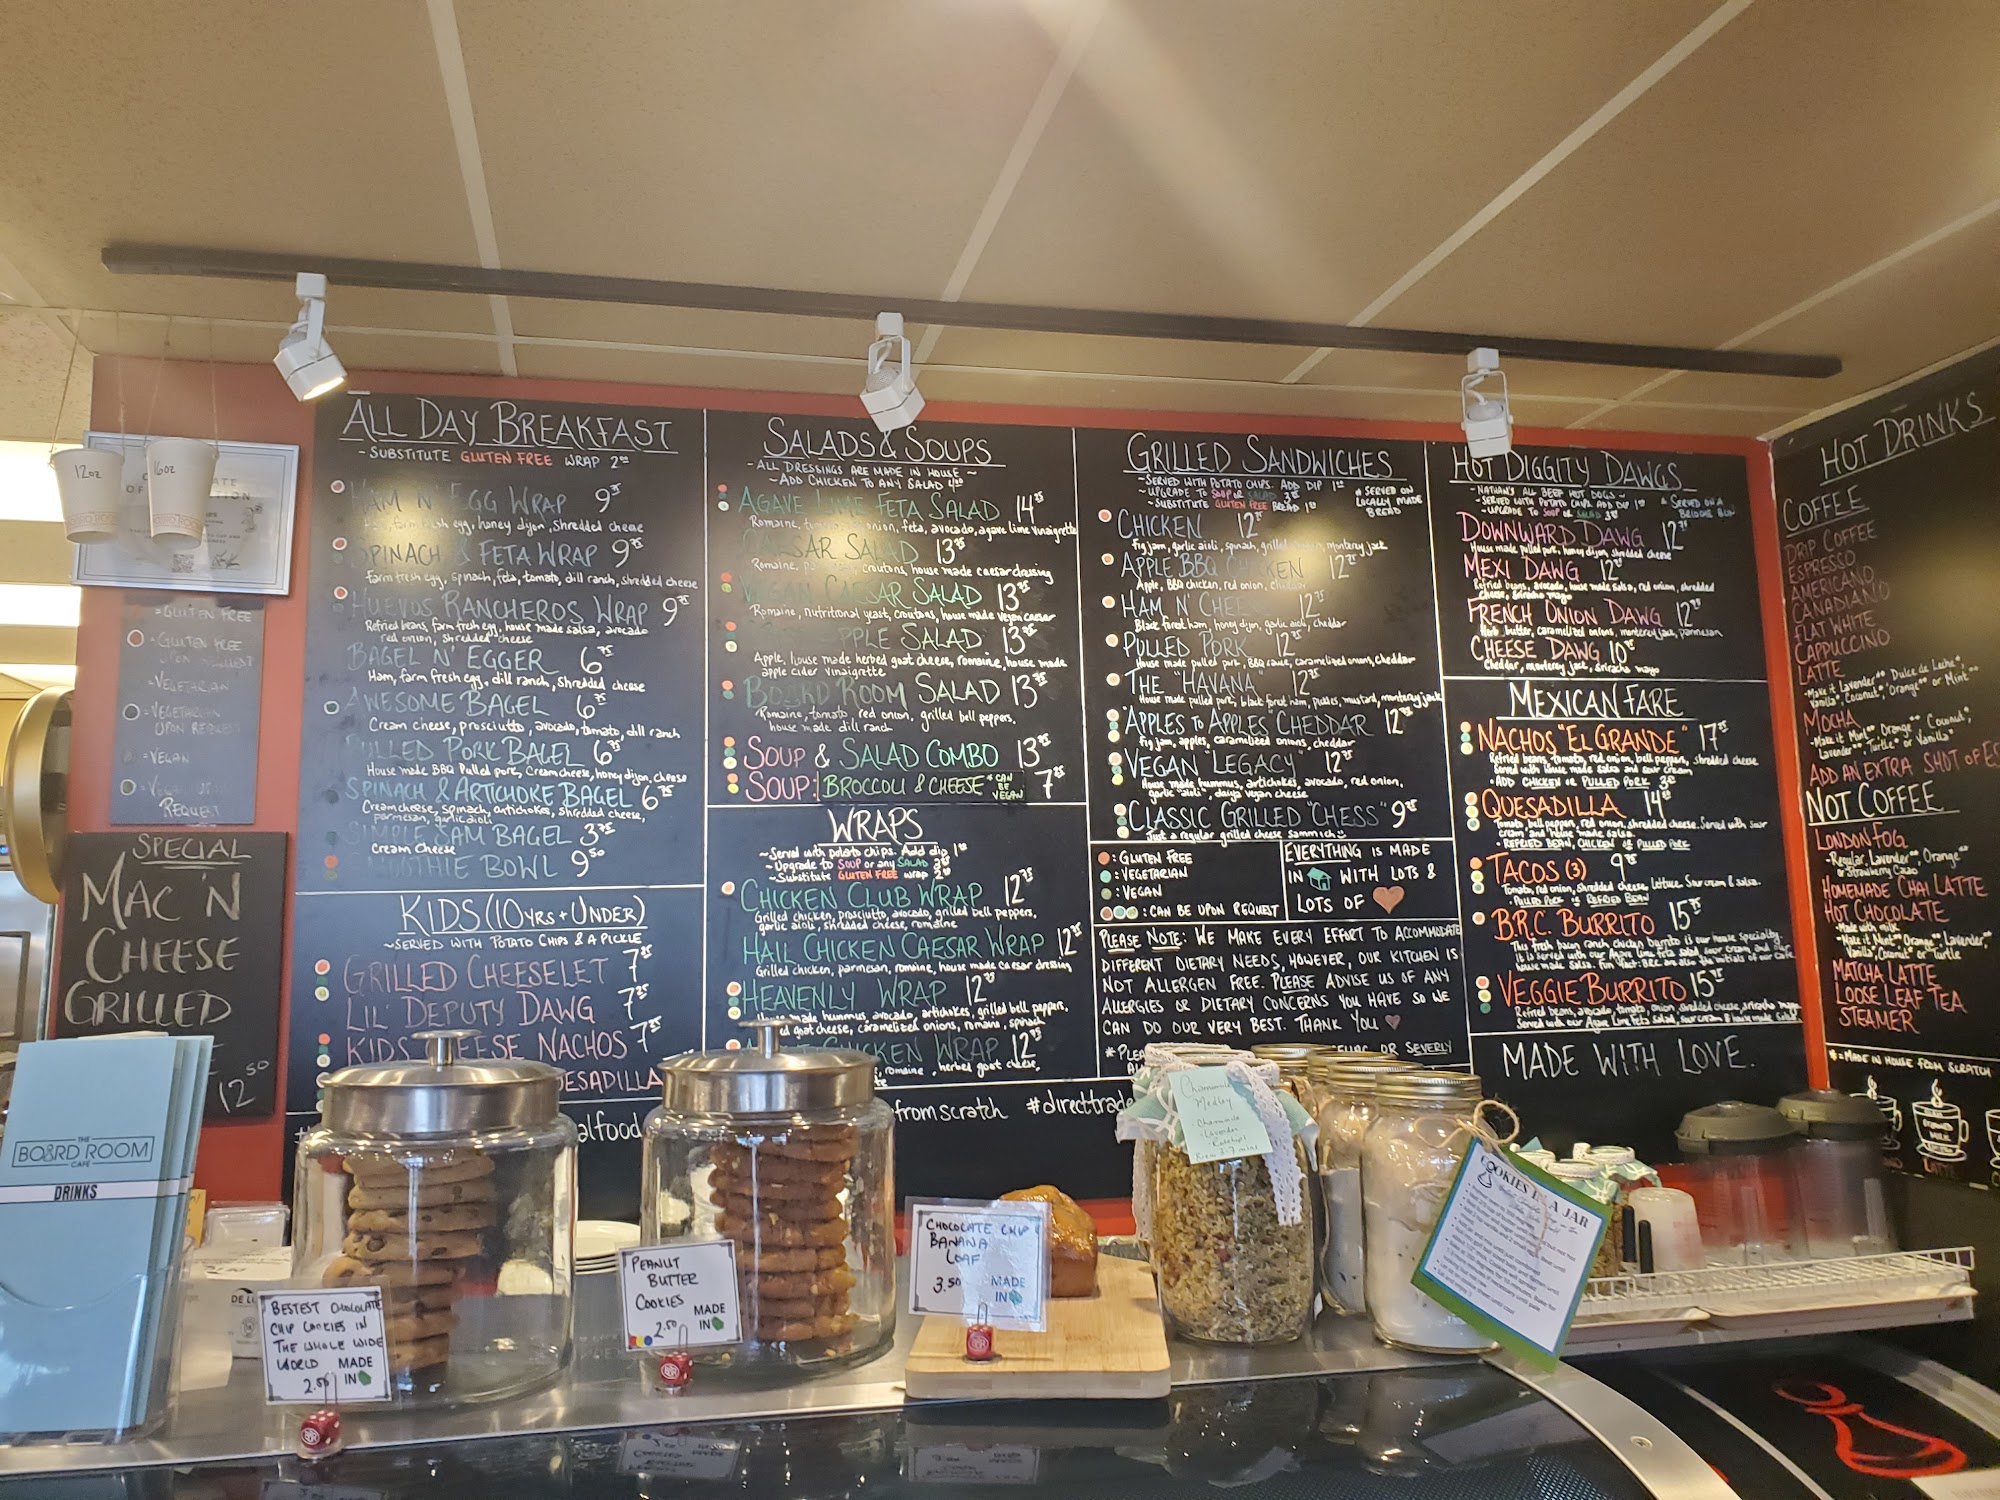 12oz
16oz
= GLUTEN FREE
= GLUTEN FREE
UPON REQUEST
= VEGETARIAN
= VEGETARIAN
UPON REQUEST
= VEGAN
REQUEST
SPECIAL
MAC 'N
CHEESE
GRILLED
12.50
THE
BOARD ROOM
CAFE
DRINKS
ALL DAY BREAKFAST
- SUBSTITUTE GLUTEN FREE WRAP 2
HAM N' EGG WRAP 9.75
farm fresh egg, honey dijon, shredded cheese
SPINACH & FETA WRAP 9.75
Farm fresh egg, spinach, feta, tomato, dill ranch, shredded cheese
HUEVOS RANCHEROS WRAP 9.75
Refried beans, farm fresh egg, house made salsa, avocado
red onion, shredded cheese
BAGEL N' EGGER 6.75
Ham, farm fresh egg, dill ranch, shredded cheese
AWESOME BAGEL 6.75
Cream cheese, prosciutto, avocado, tomato, dill ranch
PULLED PORK BAGEL 6.75
House made BBQ Pulled pork, Cream cheese, honey dijon, cheese
SPINACH & ARTICHOKE BAGEL 6.75
Cream cheese, spinach, artichokes, shredded cheese,
parmesan, garlic aioli
SIMPLE SAM BAGEL 3.75
Cream cheese
SMOOTHIE BOWL 9.50
KIDS (10 YRS + UNDER)
~ SERVED WITH POTATO CHIPS & A PICKLE
GRILLED CHEESELET 7.25
LIL' DEPUTY DAWG 7.25
KIDS CHEESE NACHOS 7.25
QUESADILLA
SALADS & SOUPS
- ALL DRESSINGS ARE MADE IN HOUSE ~
~ ADD CHICKEN TO ANY SALAD 4.00
AGAVE LIME FETA SALAD 14.25
Romaine, onion, feta, avocado, agave lime vinaigrette
CAESAR SALAD 13.25
Romaine, croutons, house made caesar dressing
VEGAN CAESAR SALAD 13.25
Romaine, nutritional yeast, croutons, house made vegan caesar
APPLE SALAD 13.25
Apple, house made herbed goat cheese, romaine, house made
apple cider vinaigrette
BOARD ROOM SALAD 13.25
Romaine, tomato, red onion, grilled bell peppers,
house made dill ranch
SOUP & SALAD COMBO 13.25
SOUP: BROCCOLI & CHEESE * CAN BE VEGAN 7.25
WRAPS
~ Served with potato chips. Add dip 1
- Upgrade to SOUP or any SALAD 3
~ Substitute GLUTEN FREE wrap 2
CHICKEN CLUB WRAP 12.75
Grilled chicken, prosciutto, avocado, grilled bell peppers,
garlic aioli, shredded cheese, romaine
HAIL CHICKEN CAESAR WRAP 12.75
Grilled chicken, parmesan, romaine, house made caesar dressing
HEAVENLY WRAP 12
House made hummus, avocado, artichokes, grilled bell peppers,
goat cheese, caramelized onions, romaine, spinach
CHICKEN WRAP 12
romaine, herbed goat cheese,
GRILLED SANDWICHES
- SERVED WITH POTATO CHIPS. ADD DIP 1
- UPGRADE TO SOUP OR SALAD 3
- SUBSTITUTE GLUTEN FREE BREAD 1
* SERVED ON
LOCALLY MADE
BREAD
CHICKEN 12
Fig jam, garlic aioli, spinach, grilled onion, monterey jack
APPLE BBQ CHICKEN 12
Apple, BBQ chicken, red onion, cheddar
HAM N' CHEESE 12
Black forest ham, honey dijon, garlic aioli, cheddar
PULLED PORK 12
House made pulled pork, BBQ sauce, caramelized onions, cheddar
THE "HAVANA" 12
House made pulled pork, black forest ham, pickles, mustard, monterey jack
"APPLES TO APPLES" CHEDDAR 12
Fig jam, apples, caramelized onions, cheddar
VEGAN "LEGACY" 12
House made hummus, artichokes, avocado, red onion,
garlic "aioli", daiya vegan cheese
CLASSIC GRILLED "CHESS" 9
Just a regular grilled cheese sammich
: GLUTEN FREE
: VEGETARIAN
: VEGAN
: CAN BE UPON REQUEST
EVERYTHING IS MADE
IN WITH LOTS &
LOTS OF
PLEASE NOTE: WE MAKE EVERY EFFORT TO ACCOMMODATE
DIFFERENT DIETARY NEEDS, HOWEVER, OUR KITCHEN IS
NOT ALLERGEN FREE. PLEASE ADVISE US OF ANY
ALLERGIES OR DIETARY CONCERNS YOU HAVE SO WE
CAN DO OUR VERY BEST. THANK YOU
OR SEVERLY
HOT DIGGITY DAWGS
- NATHAN'S ALL BEEF HOT DOGS ~
- SERVED WITH POTATO CHIPS. ADD DIP 1
- UPGRADE TO SOUP OR SALAD 3
SERVED ON A
BRIOCHE BUN
DOWNWARD DAWG 12
House made pulled pork, honey dijon, shredded cheese
MEXI DAWG 12
Refried beans, avocado, house made salsa, red onion, shredded
cheese, sriracha mayo
FRENCH ONION DAWG 12
Herb butter, caramelized onions, monterey jack, parmesan
CHEESE DAWG 10
Cheddar, monterey jack, sriracha mayo
MEXICAN FARE
NACHOS "EL GRANDE" 17.25
Refried beans, tomato, red onion, bell peppers, shredded cheese
Served with house made salsa and sour cream
- ADD CHICKEN OR PULLED PORK 3
QUESADILLA 14
Tomato, bell peppers, red onion, shredded cheese. Served with sour
cream and house made salsa.
- REFRIED BEAN, CHICKEN OR PULLED PORK
TACOS (3) 9
Tomato, red onion, shredded cheese, lettuce. Sour cream & salsa.
- PULLED PORK OR REFRIED BEAN
B.R.C. BURRITO 15
This fresh bacon ranch chicken burrito is our house specialty.
It is served with our Agave Lime feta Salad, sour cream and our
house made salsa. Fun fact: BRC are also the initials of our Cafe
VEGGIE BURRITO 15
Refried beans, avocado, tomato, onion, shredded cheese, sriracha mayo
Served with our Agave Lime feta Salad, sour cream & house made salsa
MADE WITH LOVE.
fromscratch #directtrade
HOT DRINKS
COFFEE
DRIP COFFEE
ESPRESSO
AMERICANO
CANADIANO
FLAT WHITE
CAPPUCCINO
LATTE
- Make it Lavender** Dulce de Leche*,
Vanilla*, Coconut*, Orange** or Mint**
MOCHA
- Make it Mint** Orange** Coconut*,
Lavender**, Turtle* or Vanilla*
ADD AN EXTRA SHOT OF ES
NOT COFFEE
LONDON FOG
- Regular, Lavender**, Orange**
or Strawberry Cacao
HOMEMADE CHAI LATTE
HOT CHOCOLATE
- Made with milk
- Make it Mint** Orange** Lavender**
Vanilla*, Coconut* or Turtle
MATCHA LATTE
LOOSE LEAF TEA
STEAMER
* = MADE IN HOUSE FROM SCRATCH
LATTE
BESTEST CHOCOLATE
CHIP COOKIES IN
THE WHOLE WIDE
WORLD MADE
2.50 IN
PEANUT
BUTTER
COOKIES MADE
2.50 IN
CHOCOLATE CHIP
BANANA
LOAF
3.50 MADE
IN
Chamomile
Medley
- Chamomile
- Lavender
COOKIES IN A JAR